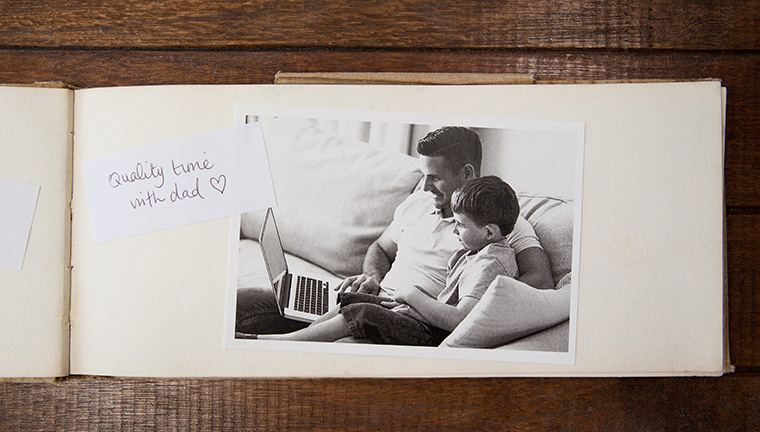 Quality time
with dad ♡